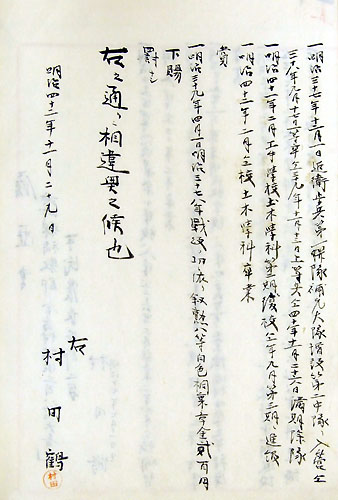 一明治三十七年十二月一日近衛歩兵第一聯隊補充大隊増設第二中隊ヘ入營仝
三十八年九月十七日一等卒仝三十九年十一月三十日上等兵仝四十年十一月二十六日満期除隊
一明治四十一年二月工手學校土木學科第二期後級仝年九月第三期ニ進級
一明治四十二年二月仝校土木學科卒業
賞
一明治三十九年四月一日明治三十七八年戰役ノ功ニ依リ叙勲八等白色桐葉章金貳百円
下賜
罰ナシ
右之通リ相違無之候也
明治四十二年十一月二十九日
右
村田鶴
村田